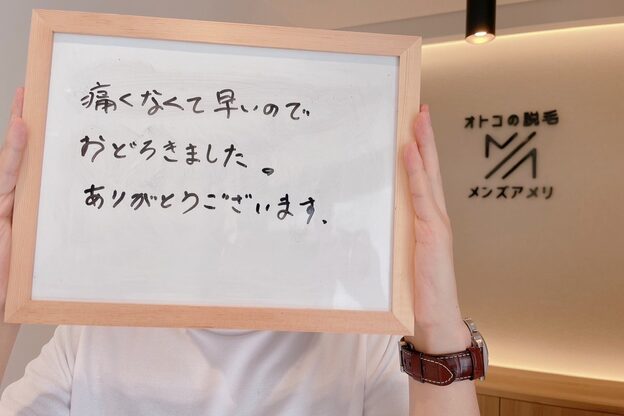 痛くなくて早いので
おどろきました。
ありがとうございます、
オトコの脱毛
メンズアメリ